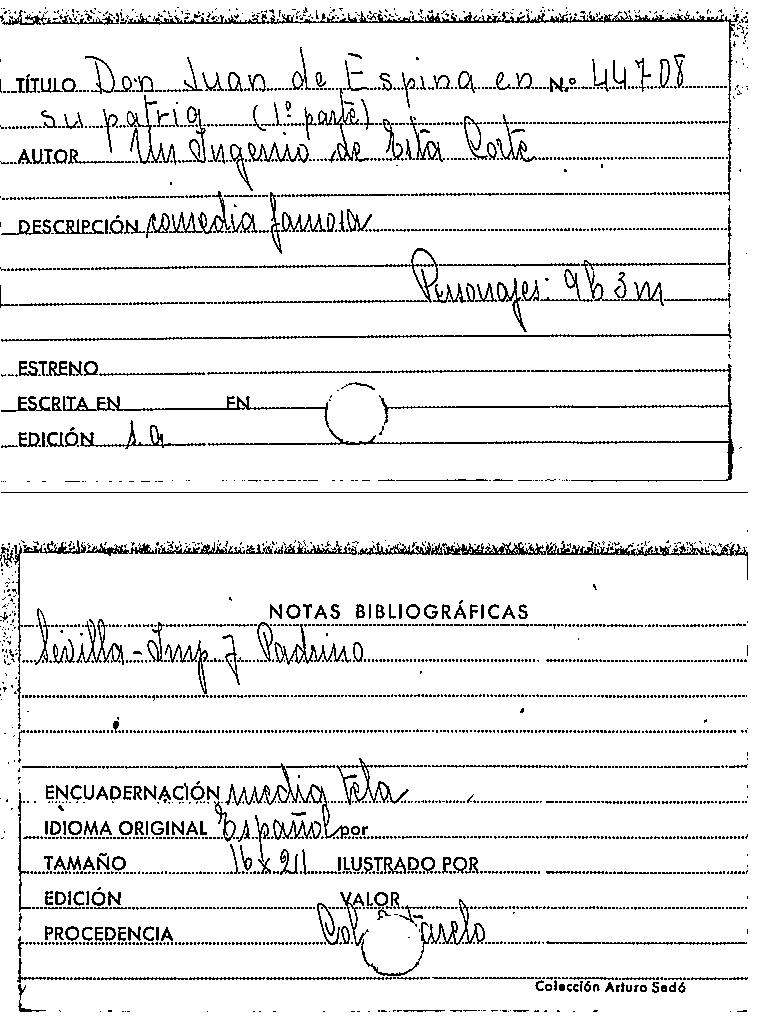 TÍTULO Don Juan de Espina en N.º 44708
su patria (1ª parte)
AUTOR Un Ingenio de Esta Corte
DESCRIPCIÓN comedia famosa
Personajes: 9h 3m
ESTRENO
ESCRITA EN EN
EDICIÓN s.a
NOTAS BIBLIOGRÁFICAS
Sevilla-Imp J Padrino
ENCUADERNACIÓN media tela
IDIOMA ORIGINAL Español por
TAMAÑO 16x211 ILUSTRADO POR
EDICIÓN VALOR
PROCEDENCIA Col tarelo
Colección Arturo Sedó